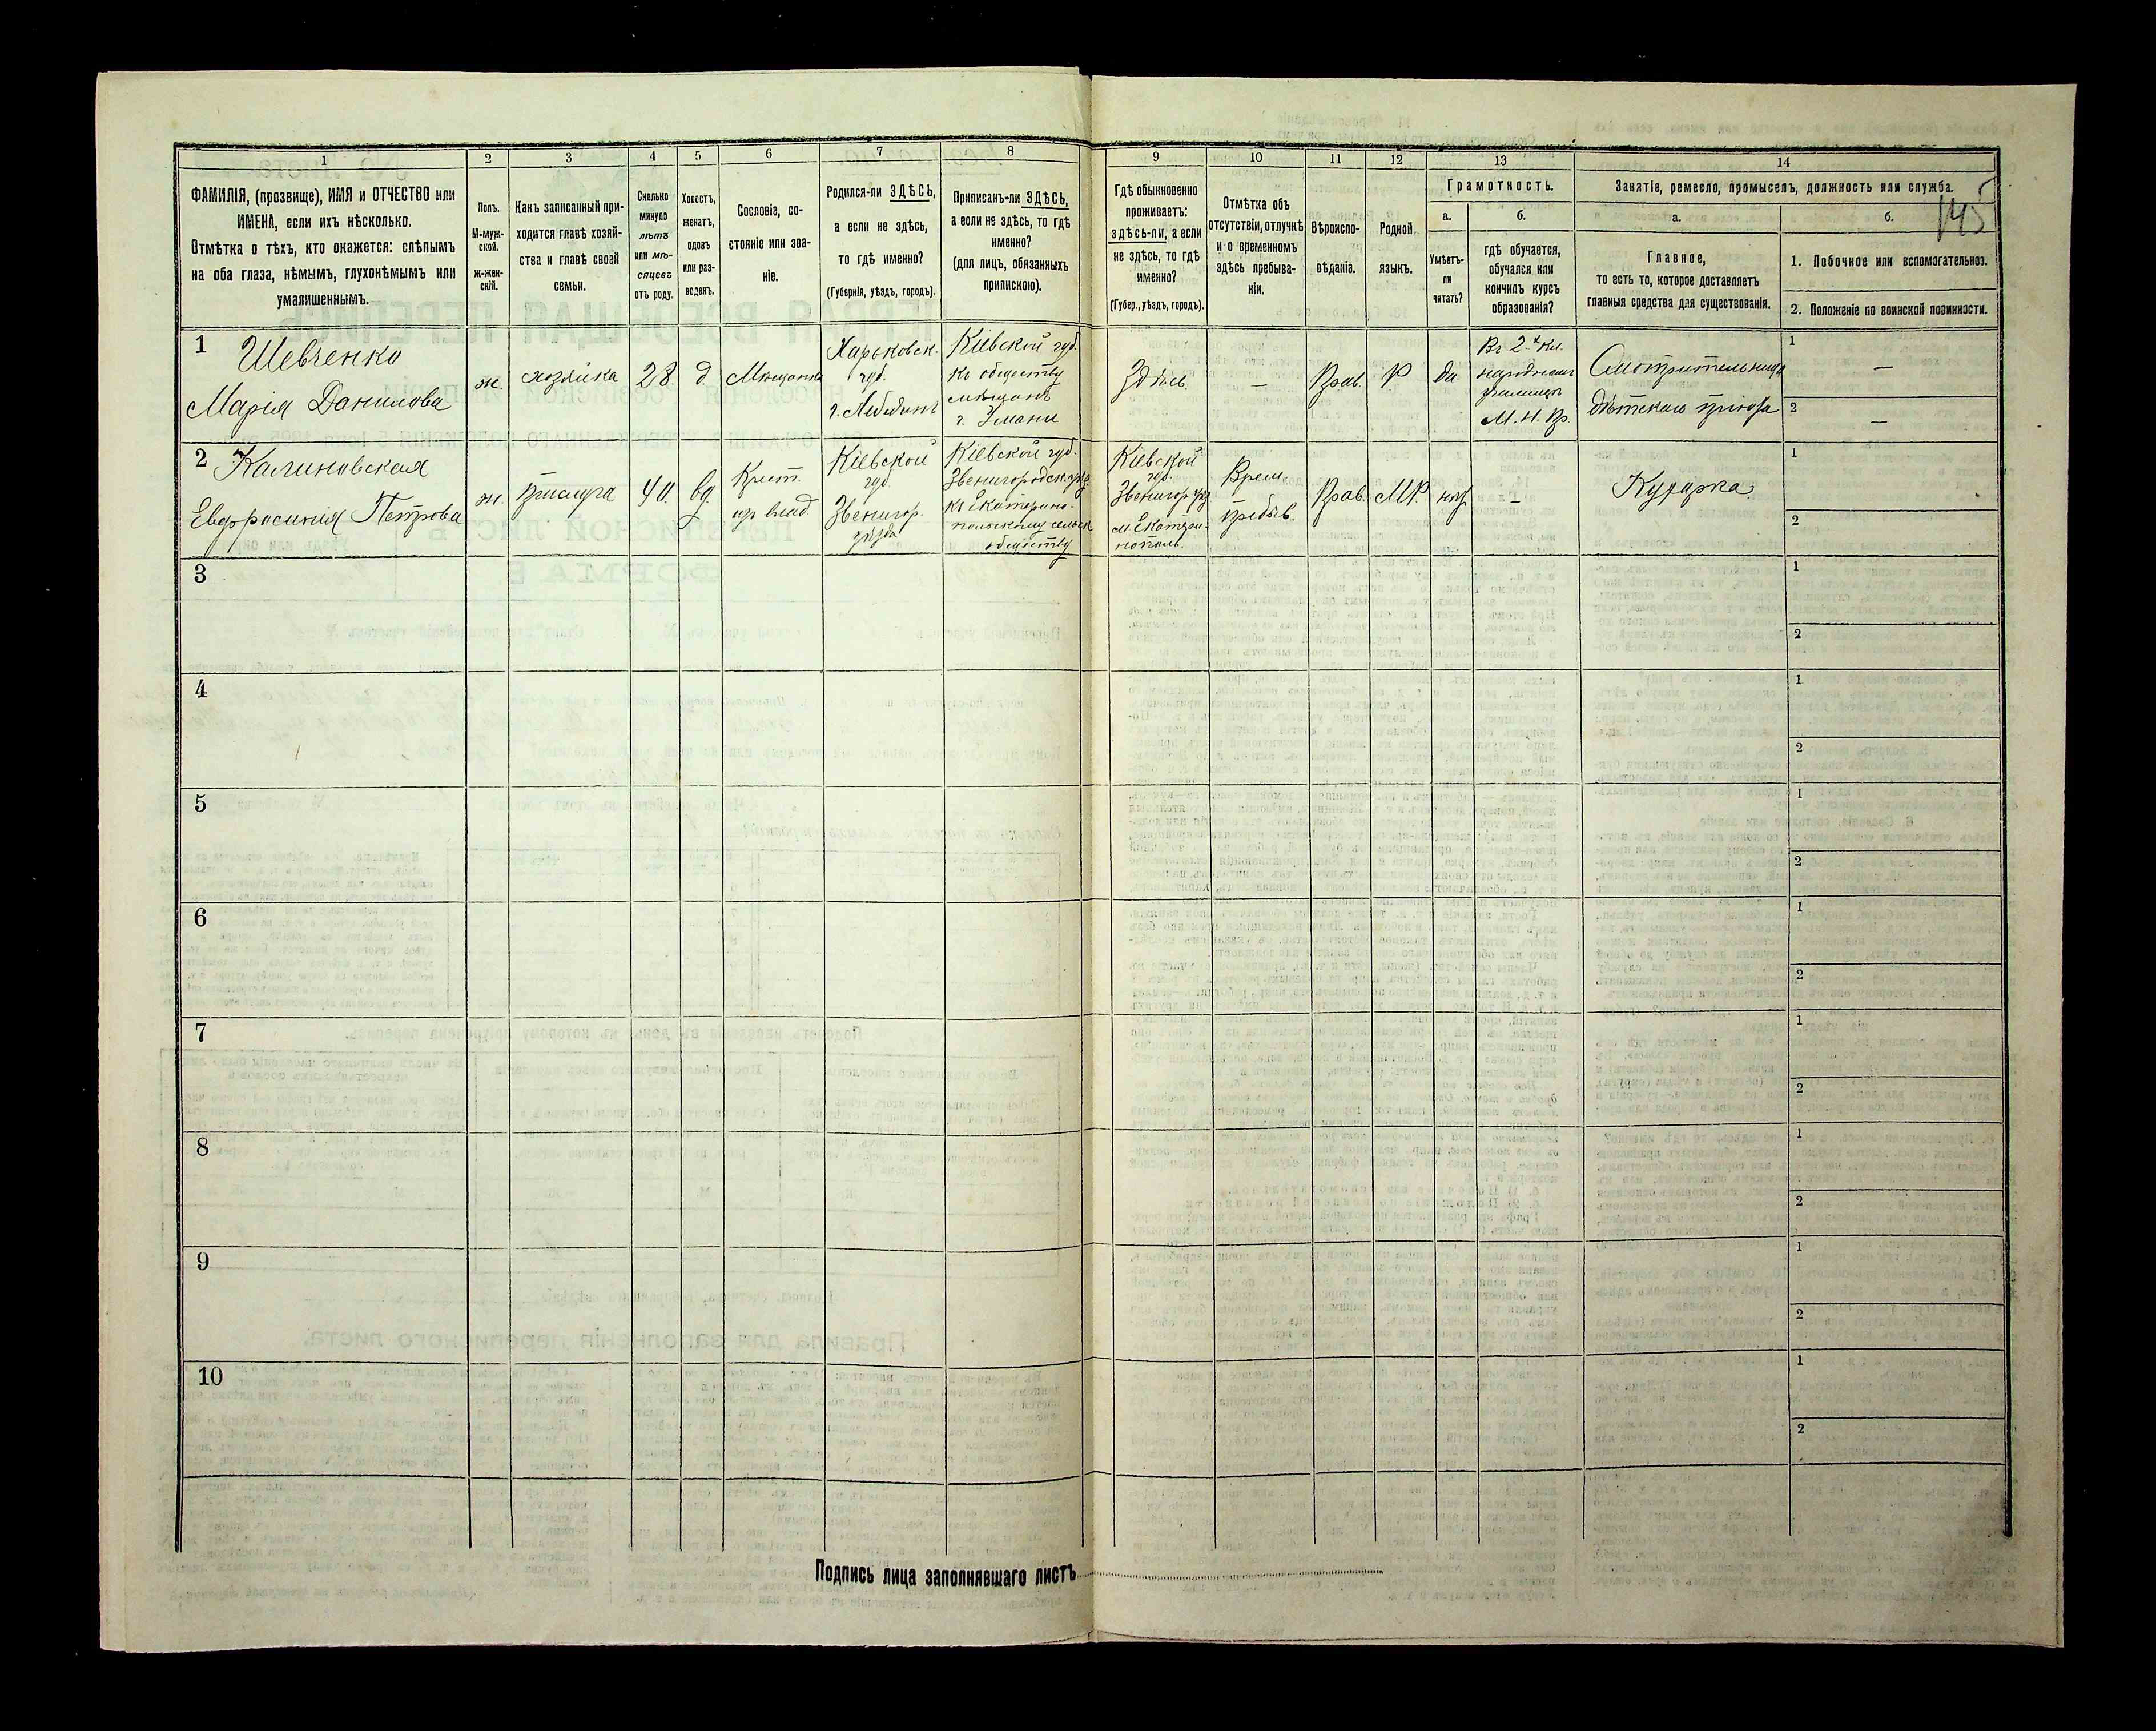 1
2
3
4
5
6
7
8
9
10
11
12
13
14
ФАМИЛІЯ, (прозвище), ИМЯ и ОТЧЕСТВО или
ИМЕНА, если ихъ нѣсколько.
Отмѣтка о тѣхъ, кто окажется: слѣпымъ
на оба глаза, нѣмымъ, глухонѣмымъ или
умалишеннымъ.
Полъ.
М-муж-
ской.
ж-жен-
скій.
Какъ записанный при-
ходится главѣ хозяй-
ства и главѣ своей
семьи.
Сколько
минуло
лѣтъ
или мѣ-
сяцевъ
отъ роду.
Холостъ,
женатъ,
вдовъ
или раз-
веденъ.
Сословіе, со-
стояніе или зва-
ніе.
Родился-ли ЗДѢСЬ,
а если не здѣсь,
то гдѣ именно?
(Губернія, уѣздъ, городъ).
Приписанъ-ли ЗДѢСЬ,
а если не здѣсь, то гдѣ
именно?
(для лицъ, обязанныхъ
припискою).
Гдѣ обыкновенно
проживаетъ:
здѣсь-ли, а если
не здѣсь, то гдѣ
именно?
(Губер., уѣздъ, городъ).
Отмѣтка объ
отсутствіи, отлучкѣ
и о временномъ
здѣсь пребыва-
ніи.
Вѣроиспо-
вѣданіе.
Родной
языкъ.
Грамотность.
а.
Умѣетъ-
ли
читать?
б.
гдѣ обучается,
обучался или
кончилъ курсъ
образованія?
Занятіе, ремесло, промыселъ, должность или служба.
а.
Главное,
то есть то, которое доставляетъ
главныя средства для существованія.
б.
145
1. Побочное или вспомогательное.
2. Положеніе по воинской повинности.
1
Шевченко
Марія Данилова
ж.
хозяйка
28
д.
Мѣщанка
Харьковск.
губ.
г. Лебединъ
Кіевской губ.
къ обществу
мѣщанъ
г. Умани
Здѣсь.
—
Прав.
Р
да
Въ 2-х кл.
народномъ
училищѣ
М. Н. Пр.
Смотрительница
дѣтскаго пріюта
1
—
2
—
2
Калиновская
Евфросинія Петрова
ж.
прислуга
40.
вд.
Крест.
Кіевской
губ.
Звенигор.
уѣзда
Кіевской губ.
Звенигородск. уѣз.
къ Екатерино-
польскому сельск.
обществу
Кіевской
губ.
Звенигор уѣз
м. Екатери-
нополь.
Врем.
пребыв.
Прав.
МР
нѣт
—
Кухарка.
1
2
3
1
2
4
1
2
5
1
2
6
1
2
7
1
2
8
1
2
9
1
2
10
1
2
Подпись лица заполнявшаго листъ